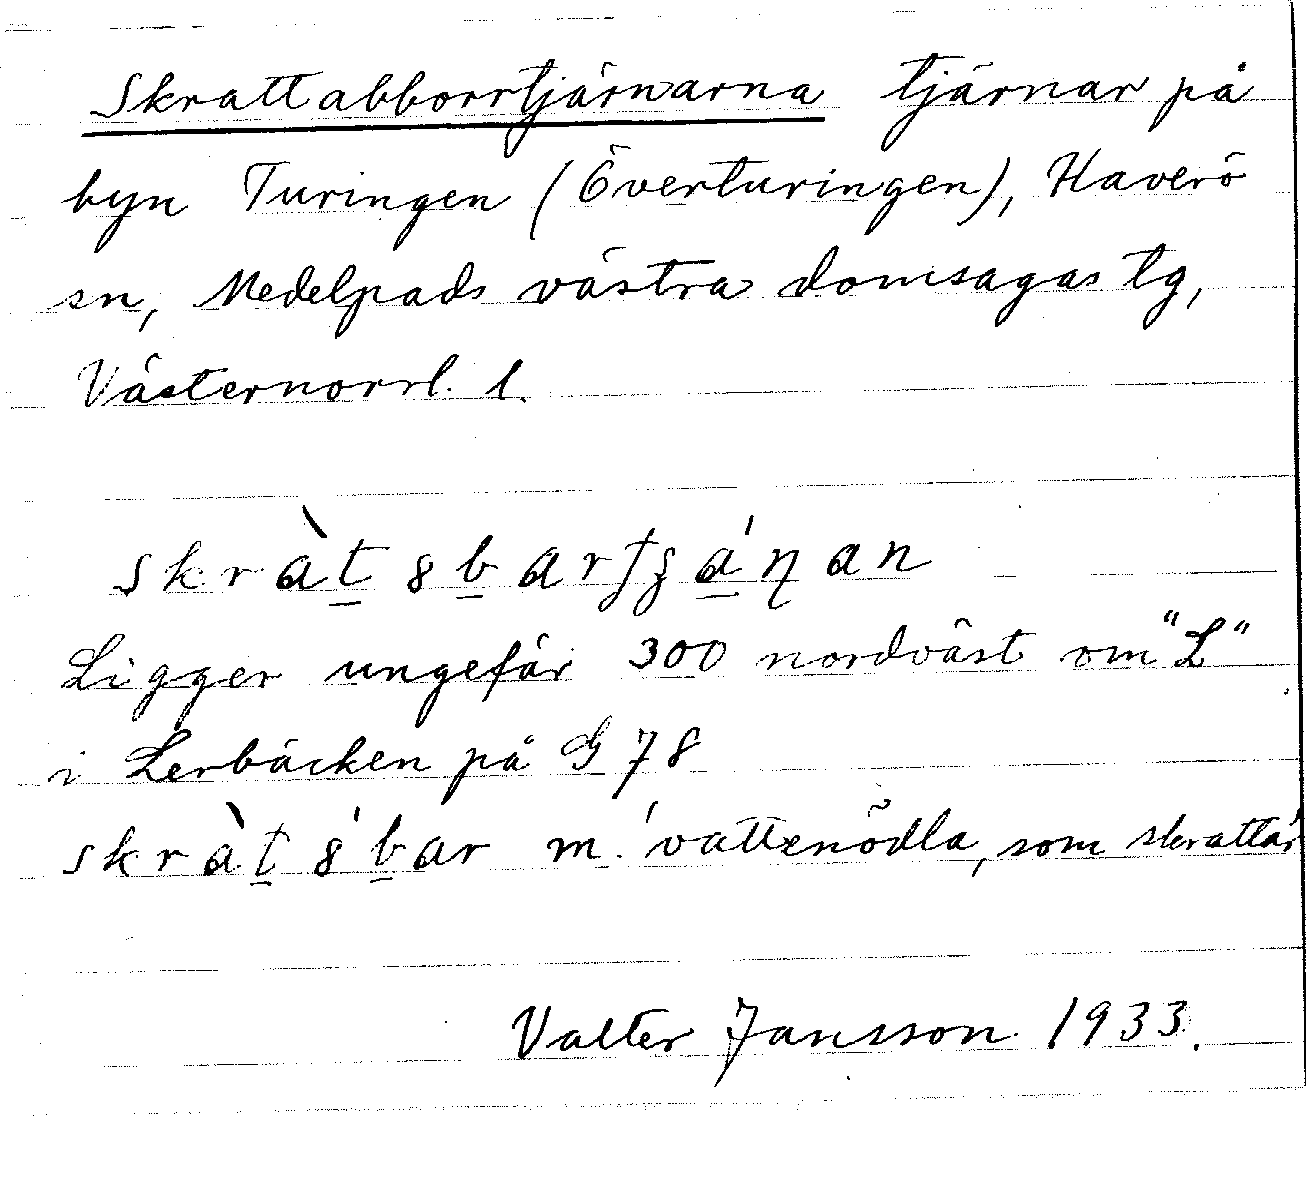 Skrattabborrtjärnarna tjärnar på
byn Turingen (Överturingen), Haverö
sn, Medelpads västra domsagas tg,
Västernorrl. l.
skràt̲ 8b̲arʃʒá̲ɳan
Ligger ungefär 300 nordväst om "L"
i Lerbäcken på G 78
skràt̲ 8́b̲ar m. 'vattenödla, som skrattar'
Valter Jansson 1933.